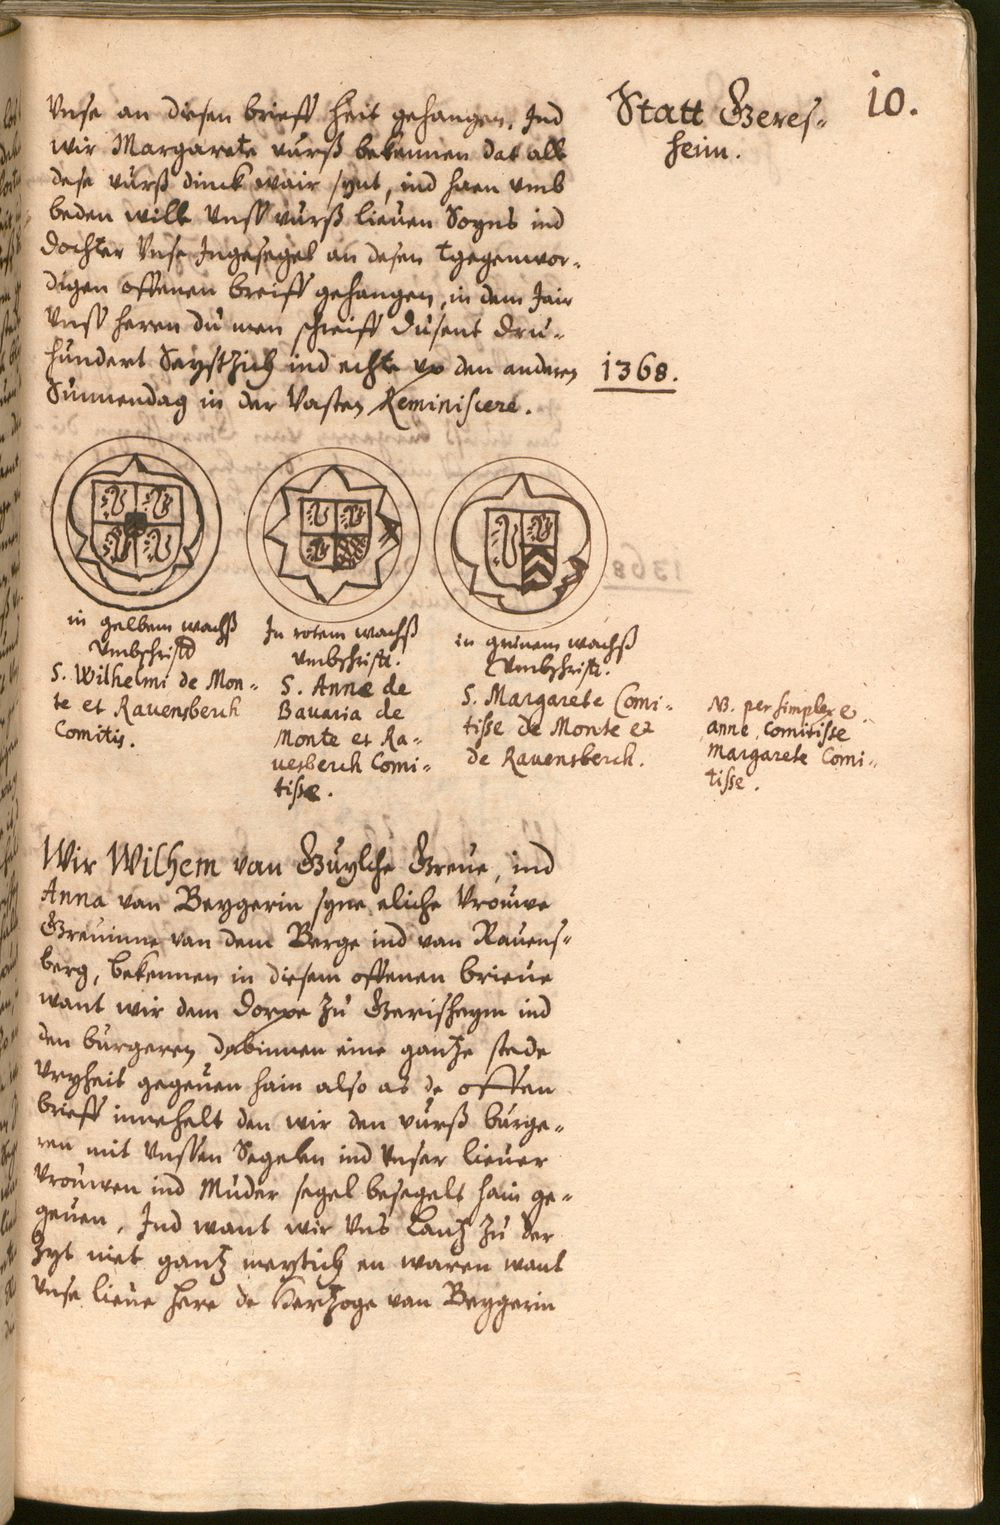 10.
Statt Geres-
heim.
Unse an diesen brieff heit gehangen. Ind
wir Margarete vurß bekennen dat all
dese vurß dinck wair synt, ind haen umb
beden will Unss vurß lieuen Soyns ind
dochter Unse Ingesegel an desen tgegenwor-
digen offenen breiff gehangen, in dem Jair
Unss heren du men schreiff dusent dru-
hundert Seystzich ind echte up den anderen
Sunnendag in der Vasten Reminiscere.
1368.
in gelbem wachß
Umbschrifft
S. Wilhelmi de Mon-
te et Rauensberch
Comitis.
In rotem wachß
Umbschrifft.
S. Anne de
Bauaria de
Monte et Ra-
uesberch Comi-
tisse.
in grünem wachß
Umbschrifft.
S. Margarete Comi-
tisse de Monte et
de Rauensberch.
NB. per simplex e.
anne, Comitisse
Margarete Comi-
tisse.
Wir Wilhem van Guylche Greue, ind
Anna van Beygerin syne eliche Vrouwe
Greuinne van dem Berge ind van Rauens-
berg, bekennen in diesem offenen brieue
want wir dem dorpe zu Gerisheym ind
den burgeren dabinnen eine gantze stede
Vryheit gegeuen hain also as de offen
brieff innehelt den wir den vurß burge-
ren mit Unssen Segelen ind Unser lieuer
Vrouwen ind Muder segel besegelt hain ge-
geuen. Ind want wir Uns Lantz zu der
Zyt niet gantz meytich en waren want
Unse lieue here de Hertzoge van Beygerin